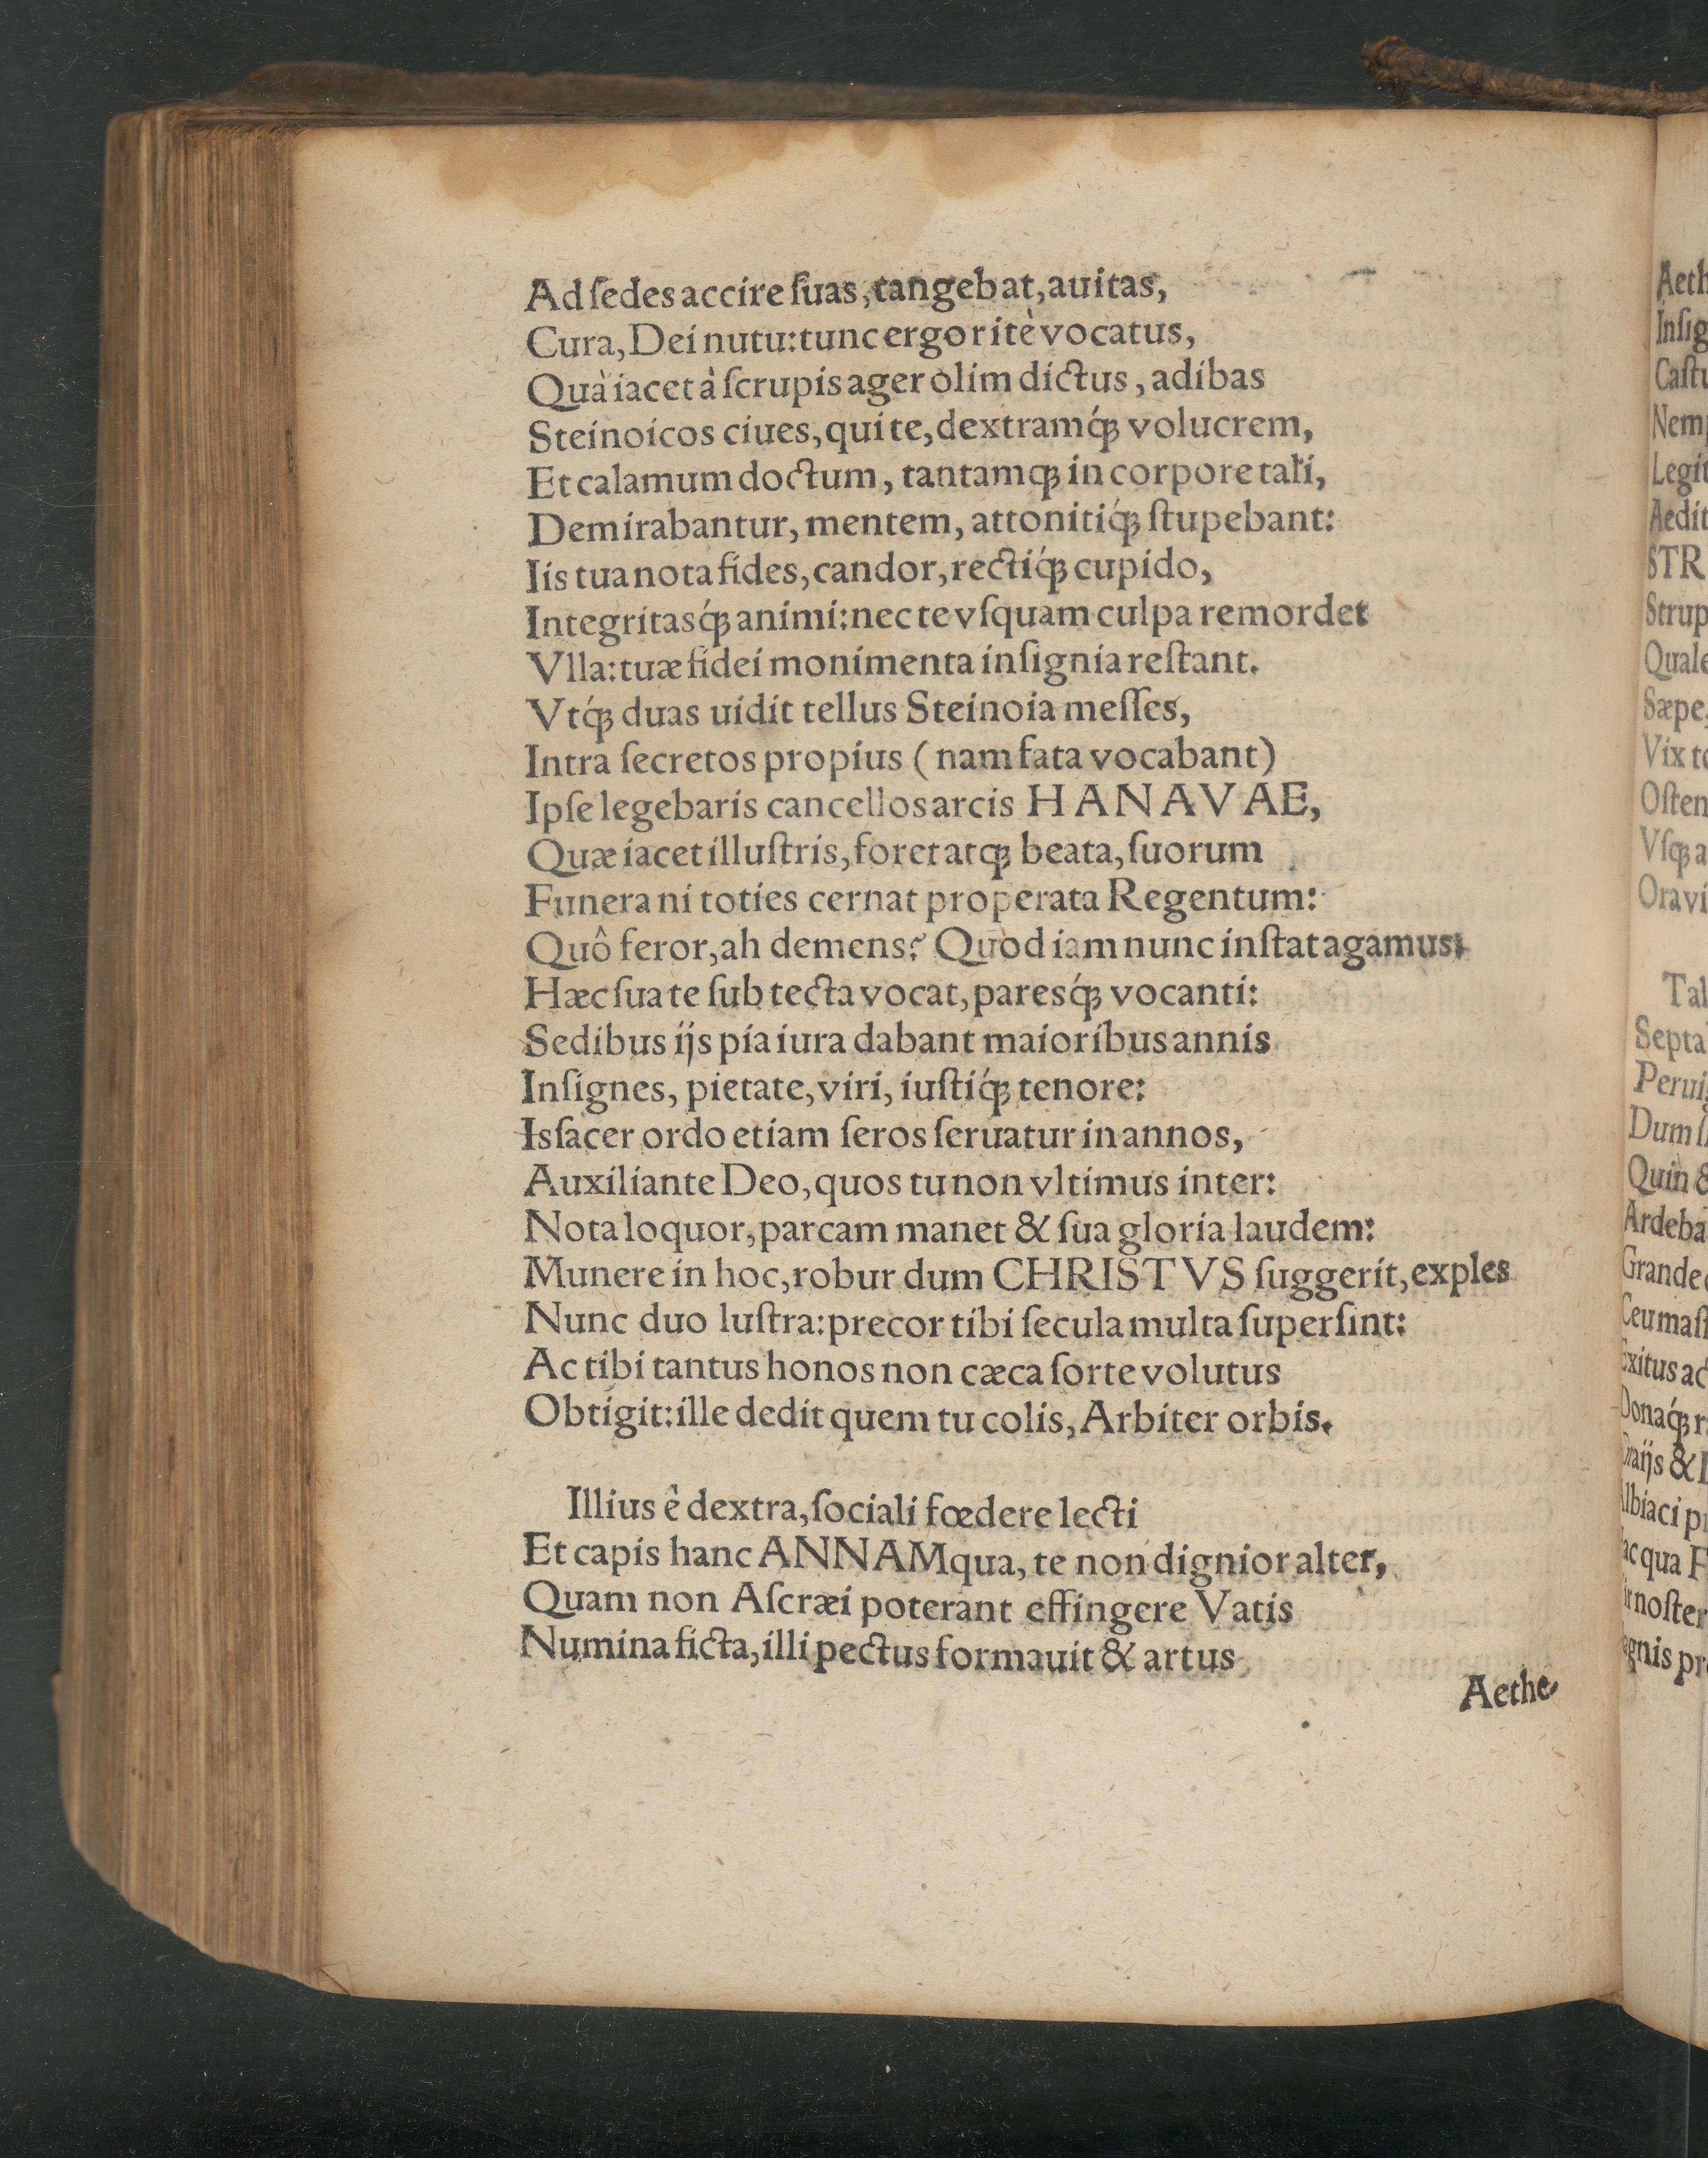 Ad ſedes accire ſuas, tangebat, auitas,
Cura, Dei nutu: tunc ergo ritè vocatus,
Quà iacet à ſcrupis ager olim dictus, adibas
Steinoicos ciues, qui te, dextramq́ꝫ volucrem,
Et calamum doctum, tantamqꝫ in corpore tali,
Demirabantur, mentem, attonitiq́ꝫ ſtupebant:
Iis tua nota fides, candor, rectiq́ꝫ cupido,
Integritasq́ꝫ animi: nec te vſquam culpa remordet
Vlla: tuæ fidei monimenta inſignia reſtant.
Vtq́ꝫ duas uidit tellus Steinoia meſſes,
Intra ſecretos propius (nam fata vocabant)
Ipſe legebaris cancellos arcis HANAVAE,
Quæ iacet illuſtris, foret atqꝫ beata, ſuorum
Funera ni toties cernat properata Regentum:
Quô feror, ah demens? Quòd iam nunc inſtat agamus:
Hæc ſua te ſub tecta vocat, paresq́ꝫ vocanti:
Sedibus ijs pia iura dabant maioribus annis
Inſignes, pietate, viri, iuſtiq́ꝫ tenore:
Is ſacer ordo etiam ſeros ſeruatur in annos,
Auxiliante Deo, quos tu non vltimus inter:
Nota loquor, parcam manet & ſua gloria laudem:
Munere in hoc, robur dum CHRISTVS ſuggerit, exples
Nunc duo luſtra: precor tibi ſecula multa ſuperſint:
Ac tibi tantus honos non cæca ſorte volutus
Obtigit: ille dedit quem tu colis, Arbiter orbis.
Illius è dextra, ſociali fœdere lecti
Et capis hanc ANNAM qua, te non dignior alter,
Quam non Aſcræi poterant effingere Vatis
Numina ficta, illi pectus formauit & artus
Aethe-
Aeth
Inſig
Caſtu
Nem
Legit
Aedit
STR
Strup
Quale
Sæpe,
Vix to
Oſten
Vſqꝫ a
Ora vi
Tal
Septa
Perui
Dum
Quin &
Ardeba
Grande
Ceu maſ
Exitus ac
Donaq́ꝫ r
Graijs &
Albiaci p
ac qua F
noſter
agnis pr